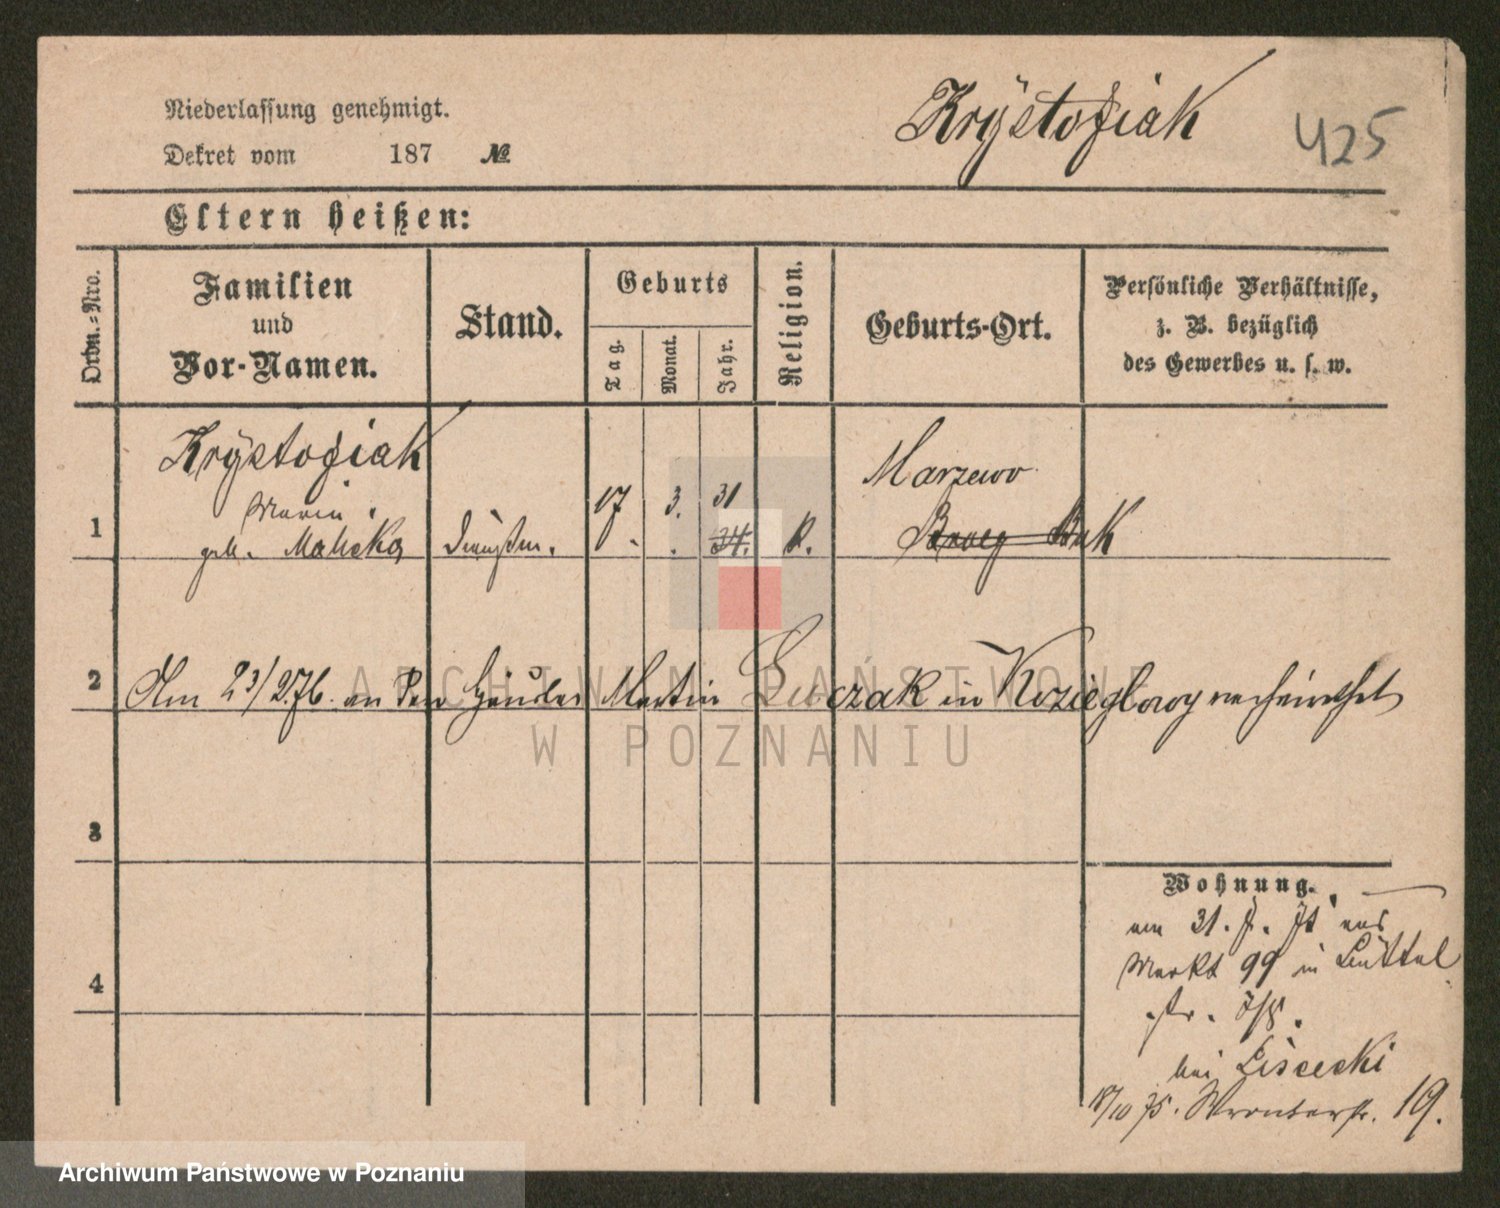 Niederlassung genehmigt.
Dekret vom 187 №
Krÿstofiak
425
Eltern heißen:
Ordn.-Nro.
Familien
und
Vor-Namen.
Stand.
Geburts
Tag.
Monat.
Jahr.
Religion.
Geburts-Ort.
Persönliche Verhältnisse,
z. B. bezüglich
des Gewerbes u. s. w.
1
Krÿstofiak
Maria
geb.
17. 3. 31
34.
k.
Marzewo
Buk
2
Am 23/2.76. an den Martin Luczak in Kozieglowy verheirathet
3
4
Wohnung.
am 31. 71 aus
Markt 99 in Büttel
str.
bei Liscecki
18/10 75. Wronkerstr. 19.
ARCHIWUM PAŃSTWOWE
W POZNANIU
Archiwum Państwowe w Poznaniu